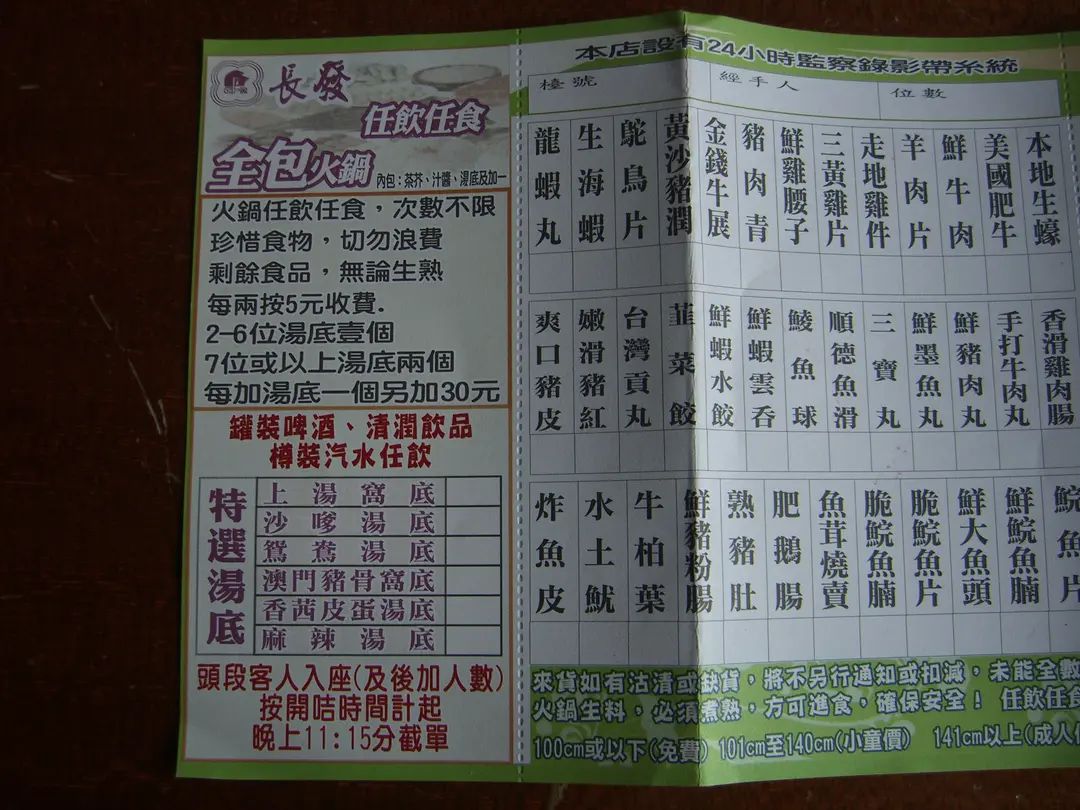 長發
任飲任食
全包火鍋
內包：茶芥、汁醬、湯底及加一
火鍋任飲任食，次數不限
珍惜食物，切勿浪費
剩餘食品，無論生熟
每兩按5元收費.
2-6位湯底壹個
7位或以上湯底兩個
每加湯底一個另加30元
罐裝啤酒、清潤飲品
樽裝汽水任飲
特選湯底
上湯窩底
沙嗲湯底
鴛鴦湯底
澳門豬骨窩底
香茜皮蛋湯底
麻辣湯底
頭段客人入座(及後加人數)
按開咭時間計起
晚上11:15分截單
本店設有24小時監察錄影帶系統
檯號
經手人
位數
龍蝦丸
生海蝦
鴕鳥片
黃沙豬潤
金錢牛展
豬肉青
鮮雞腰子
三黃雞片
走地雞件
羊肉片
鮮牛肉
美國肥牛
本地生蠔
爽口豬皮
嫩滑豬紅
台灣貢丸
韮菜餃
鮮蝦水餃
鮮蝦雲吞
鯪魚球
順德魚滑
三寶丸
鮮墨魚丸
鮮豬肉丸
手打牛肉丸
香滑雞肉腸
炸魚皮
水土魷
牛柏葉
鮮豬粉腸
熟豬肚
肥鵝腸
魚茸燒賣
脆鯇魚腩
脆鯇魚片
鮮大魚頭
鮮鯇魚腩
鯇魚片
來貨如有沽清或缺貨，將不另行通知或扣減，未能全數
火鍋生料，必須煮熟，方可進食，確保安全！ 任飲任食
100cm或以下(免費) 101cm至140cm(小童價) 141cm以上(成人